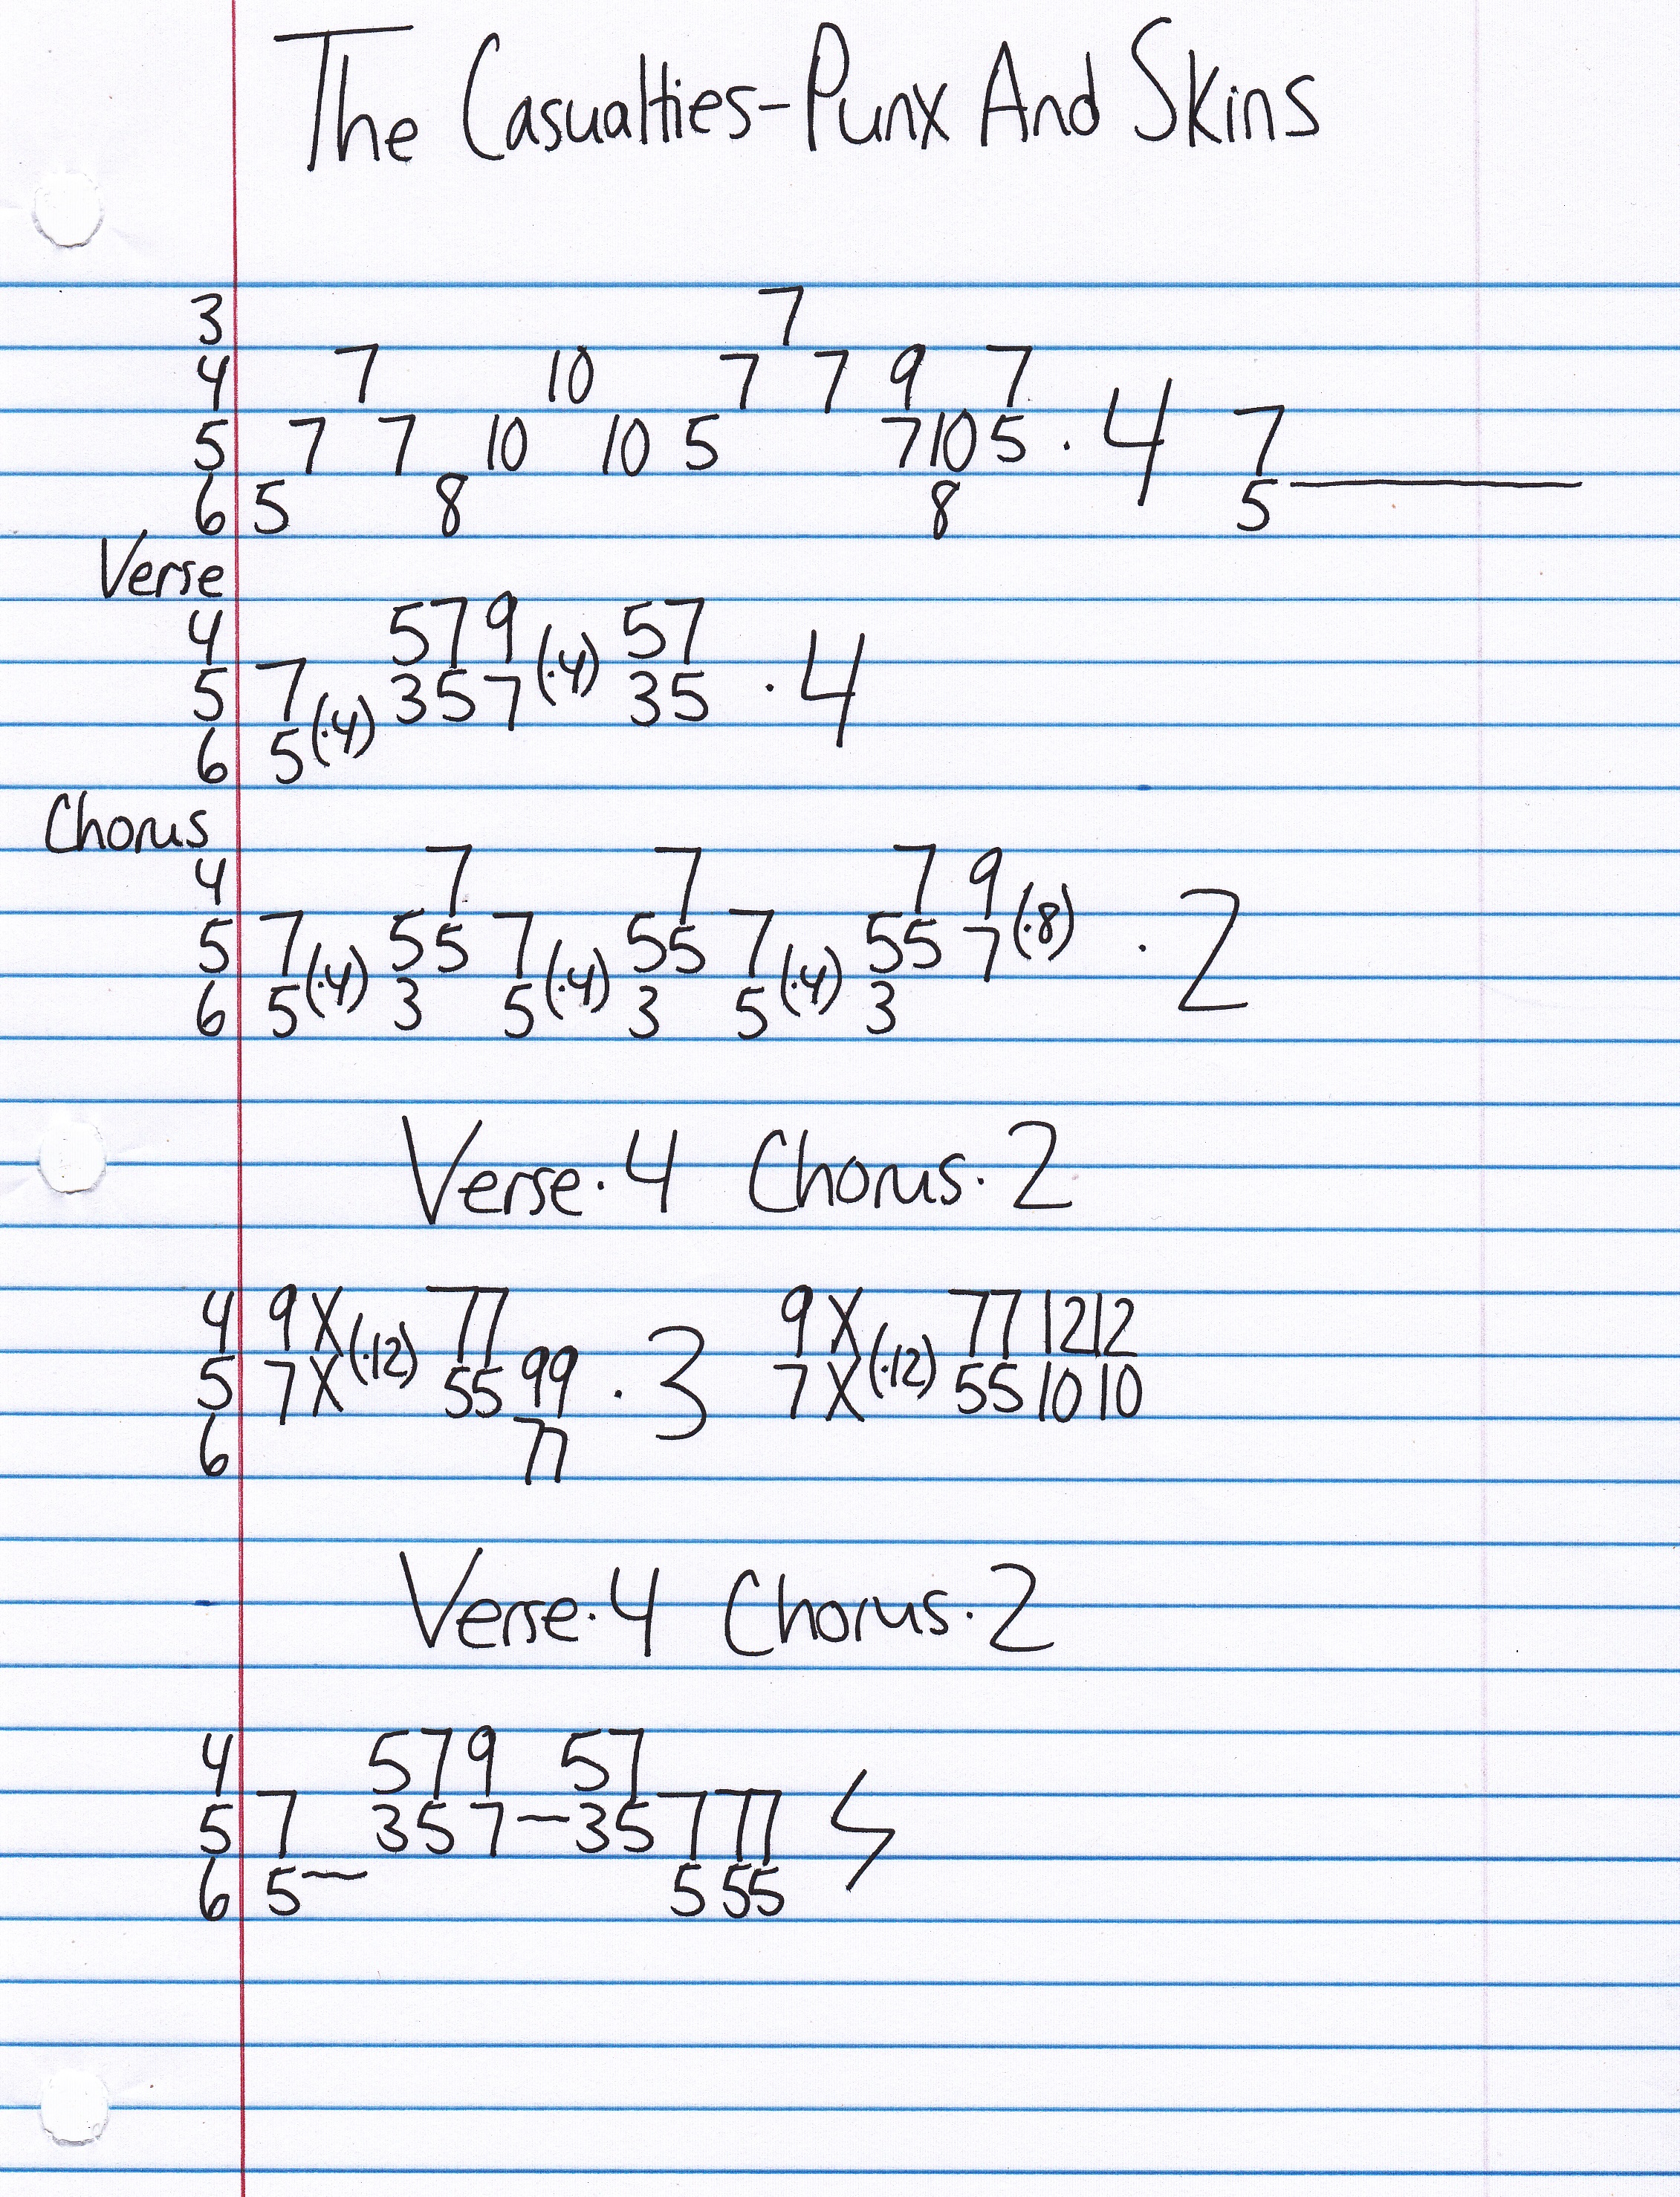 The Casualties-Punx And Skins
3 7
4 7 10 7 7 9 7
5 7 7 10 10 5 7 10 5 · 4 7
6 5 8 8 5
Verse
4 5 7 9 (·4) 5 7
5 7 3 5 7 3 5 · 4
6 5 (·4)
Chorus
4 7 7 7 9
5 7 5 5 7 5 5 7 5 5 7 (·8) · 2
6 5 (·4) 3 5 (·4) 3 5 (·4) 3
Verse·4 Chorus·2
4 9 X 7 7 9 X 7 7 12 12
5 7 X (·12) 5 5 9 9 · 3 7 X (·12) 5 5 10 10
6 7 7
Verse·4 Chorus·2
4 5 7 9 5 7
5 7 3 5 7 — 3 5 7 7 7
6 5 — 5 5 5